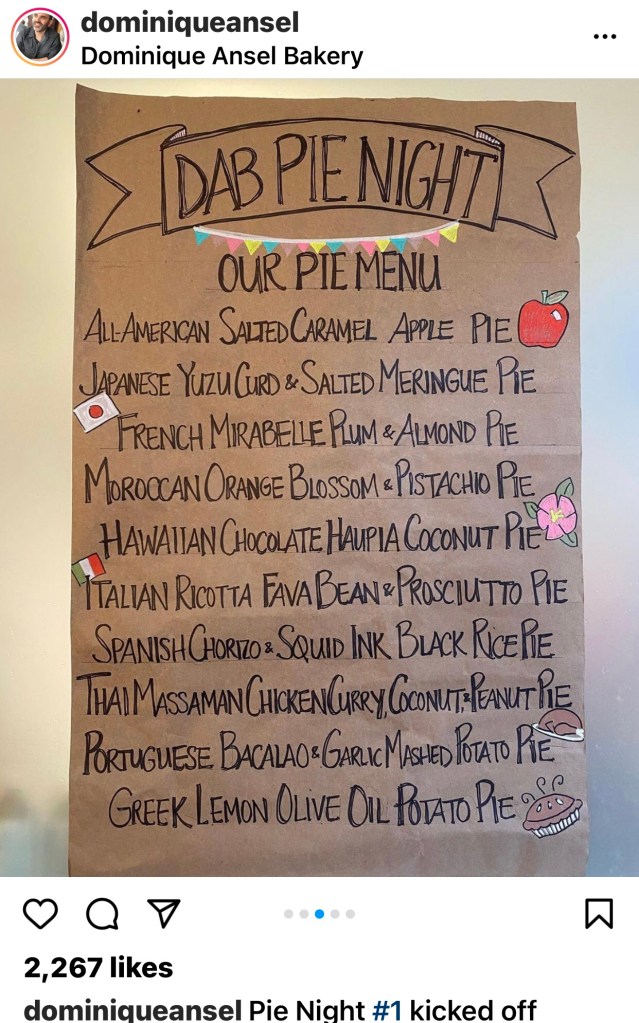 dominiqueansel
Dominique Ansel Bakery
DAB PIE NIGHT
OUR PIE MENU
ALL-AMERICAN SALTED CARAMEL APPLE PIE
JAPANESE YUZU CURD & SALTED MERINGUE PIE
FRENCH MIRABELLE PLUM & ALMOND PIE
MOROCCAN ORANGE BLOSSOM & PISTACHIO PIE
HAWAIIAN CHOCOLATE HAUPIA COCONUT PIE
ITALIAN RICOTTA FAVA BEAN & PROSCIUTTO PIE
SPANISH CHORIZO & SQUID INK BLACK RICE PIE
THAI MASSAMAN CHICKEN CURRY, COCONUT, & PEANUT PIE
PORTUGUESE BACALAO & GARLIC MASHED POTATO PIE
GREEK LEMON OLIVE OIL POTATO PIE
2,267 likes
dominiqueansel Pie Night #1 kicked off